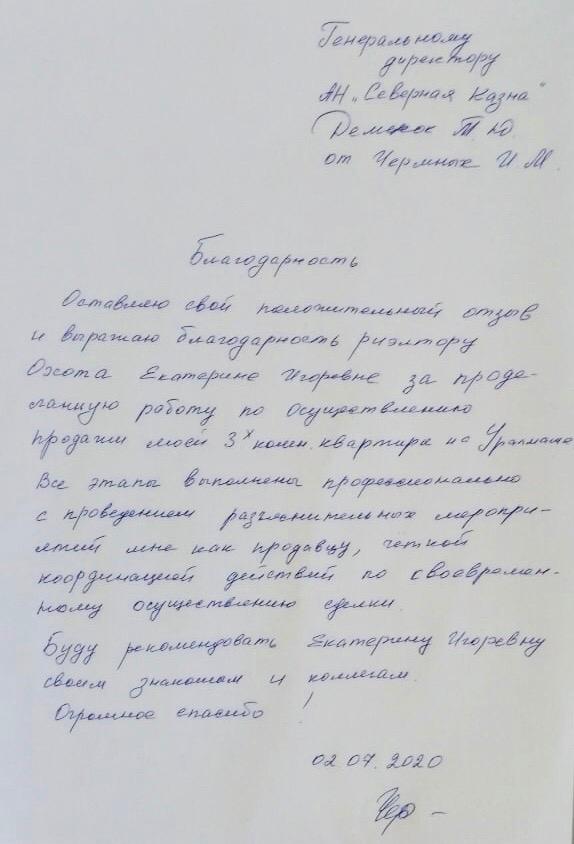 Генеральному
директору
АН „Северная Казна"
Деменок Т. Ю.
от Чермных И. М.
Благодарность
Оставляю свой положительный отзыв
и выражаю благодарность риэлтору
Охота Екатерине Игоревне за проде-
ланную работу по осуществлению
продажи моей 3х комн. квартиры на Уралмаше
Все этапы выполнены профессионально
с проведением разъяснительных меропри-
ятий мне как продавцу, четкой
координацией действий по своевремен-
ному осуществлению сделки.
Буду рекомендовать Екатерину Игоревну
своим знакомым и коллегам.
Огромное спасибо!
02.07.2020
Чер